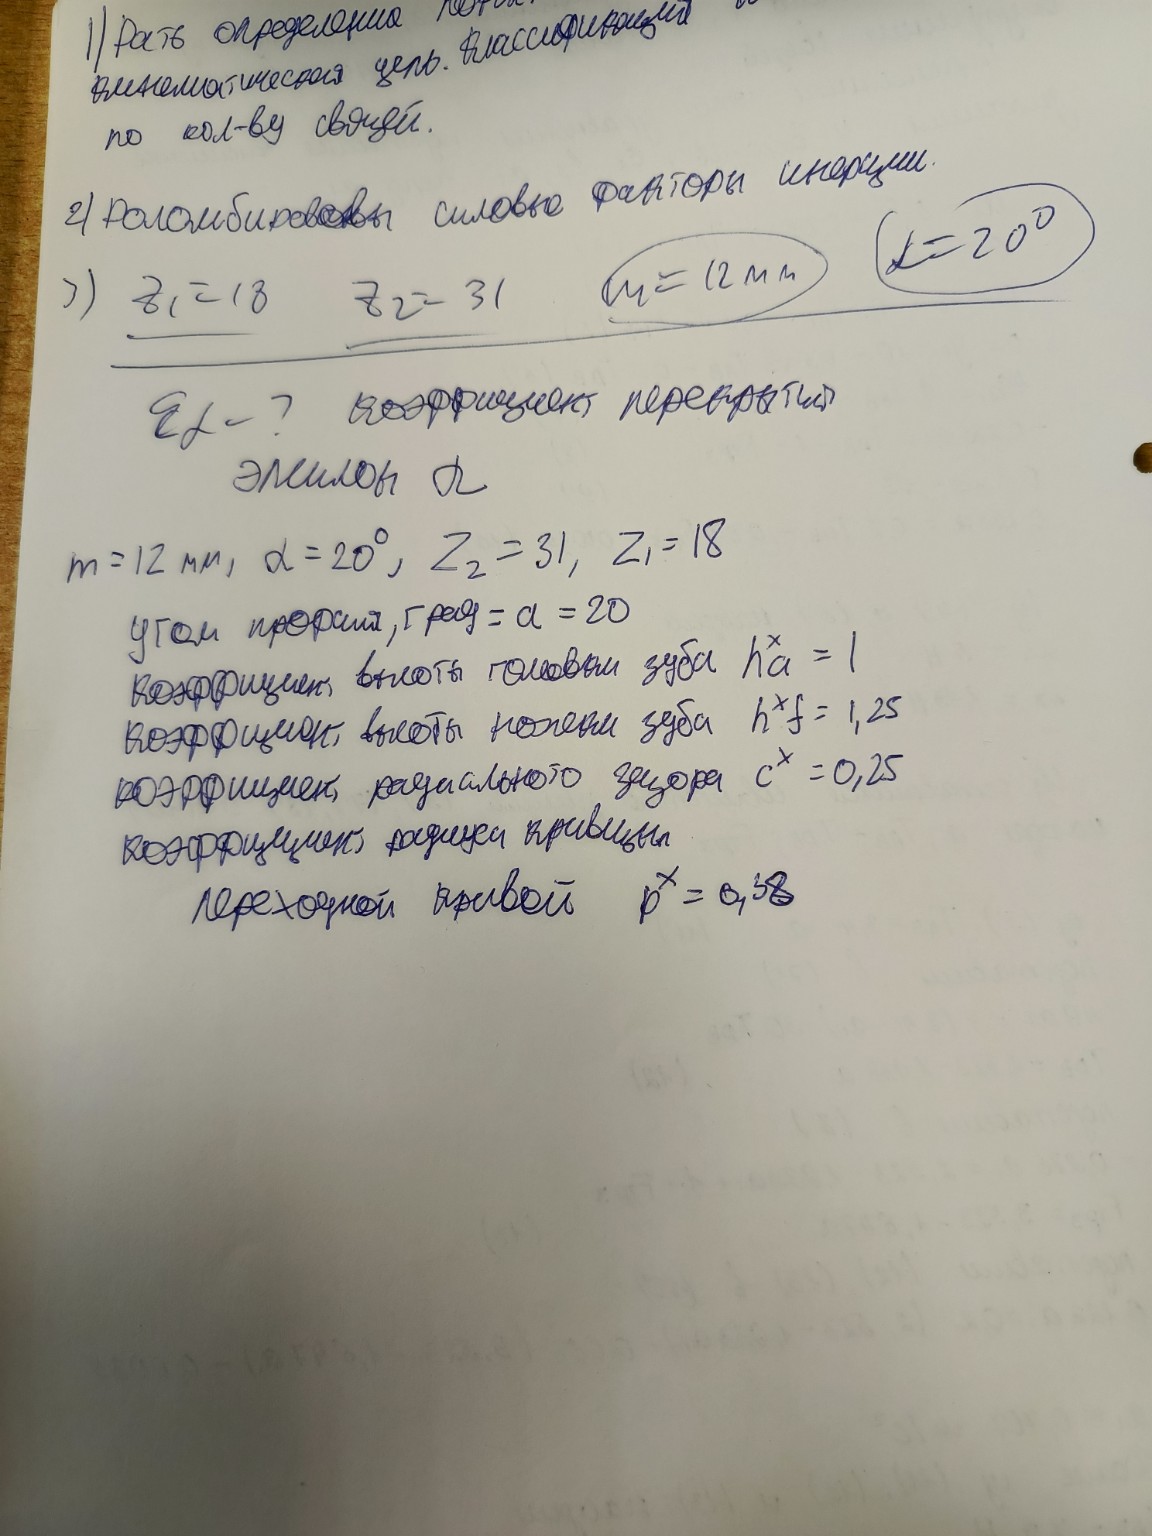 1) Дать определения
кинематическая цепь. Классификация
по кол-ву связей.
2) силовые факторы инерции.
3) Z₁=18 Z₂=31 m=12 мм α=20°
Eα-? коэффициент перекрытия
эпсилон α
m=12 мм, α=20°, Z₂=31, Z₁=18
угол профиля, град = a = 20
коэффициент высоты головки зуба hˣa = 1
коэффициент высоты ножки зуба hˣf = 1,25
коэффициент радиального зазора cˣ = 0,25
коэффициент радиуса кривизны
переходной кривой pˣ = 0,38